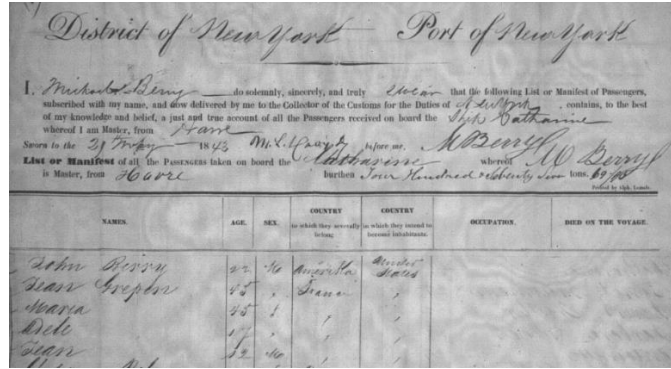 District of New York Port of New York
I, Michael Berry do solemnly, sincerely, and truly swear that the following List or Manifest of Passengers,
subscribed with my name, and now delivered by me to the Collector of the Customs for the Duties of New York contains, to the best
of my knowledge and belief, a just and true account of all the Passengers received on board the Ship Catharine
whereof I am Master, from Havre
Sworn to the 29 1843 before me, M Berry
List or Manifest of all the Passengers taken on board the Catharine whereof M Berry
is Master, from Havre burthen Four Hundred & Seventy two tons. 69/95
NAMES. AGE. SEX. COUNTRY to which they severally belong. COUNTRY in which they intend to become inhabitants. OCCUPATION. DIED ON THE VOYAGE.
John Berry 22 M America United States
Jean 45 " France "
Maria 45 "
Adele 17 "
Jean 12 M "